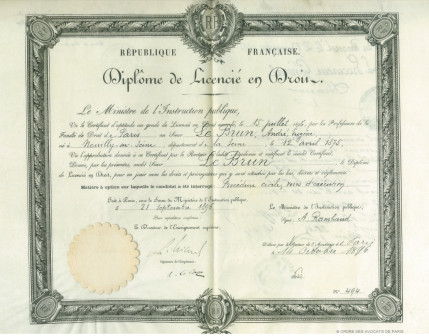 RF
RÉPUBLIQUE FRANÇAISE.
Diplôme de Licencié en Droit.
Le Ministre de l'Instruction publique,
Vu le Certificat d'aptitude au grade de Licencié en Droit accordé, le 15 juillet 1896, par les Professeurs de la
Faculté de Droit de Paris au Sieur Le Brun, André
né à Neuilly sur Seine, département de la Seine, le 12 avril 1875,
Vu l'approbation donnée à ce Certificat par le Recteur
Donne, par les présentes, audit Sieur Le Brun le Diplôme
de Licencié en Droit, pour en jouir avec les droits et prérogatives qui y sont attachés par les lois, décrets et règlements
Matière à option sur laquelle le candidat a été interrogé: Procédure civile,
le 21 septembre 1896
Le Ministre de l'Instruction publique,
Signé A. Rambaud
Le Directeur de l'Enseignement supérieur,
Délivré par de l'Académie de Paris
octobre 1896
No 494.
© ORDRE DES AVOCATS DE PARIS